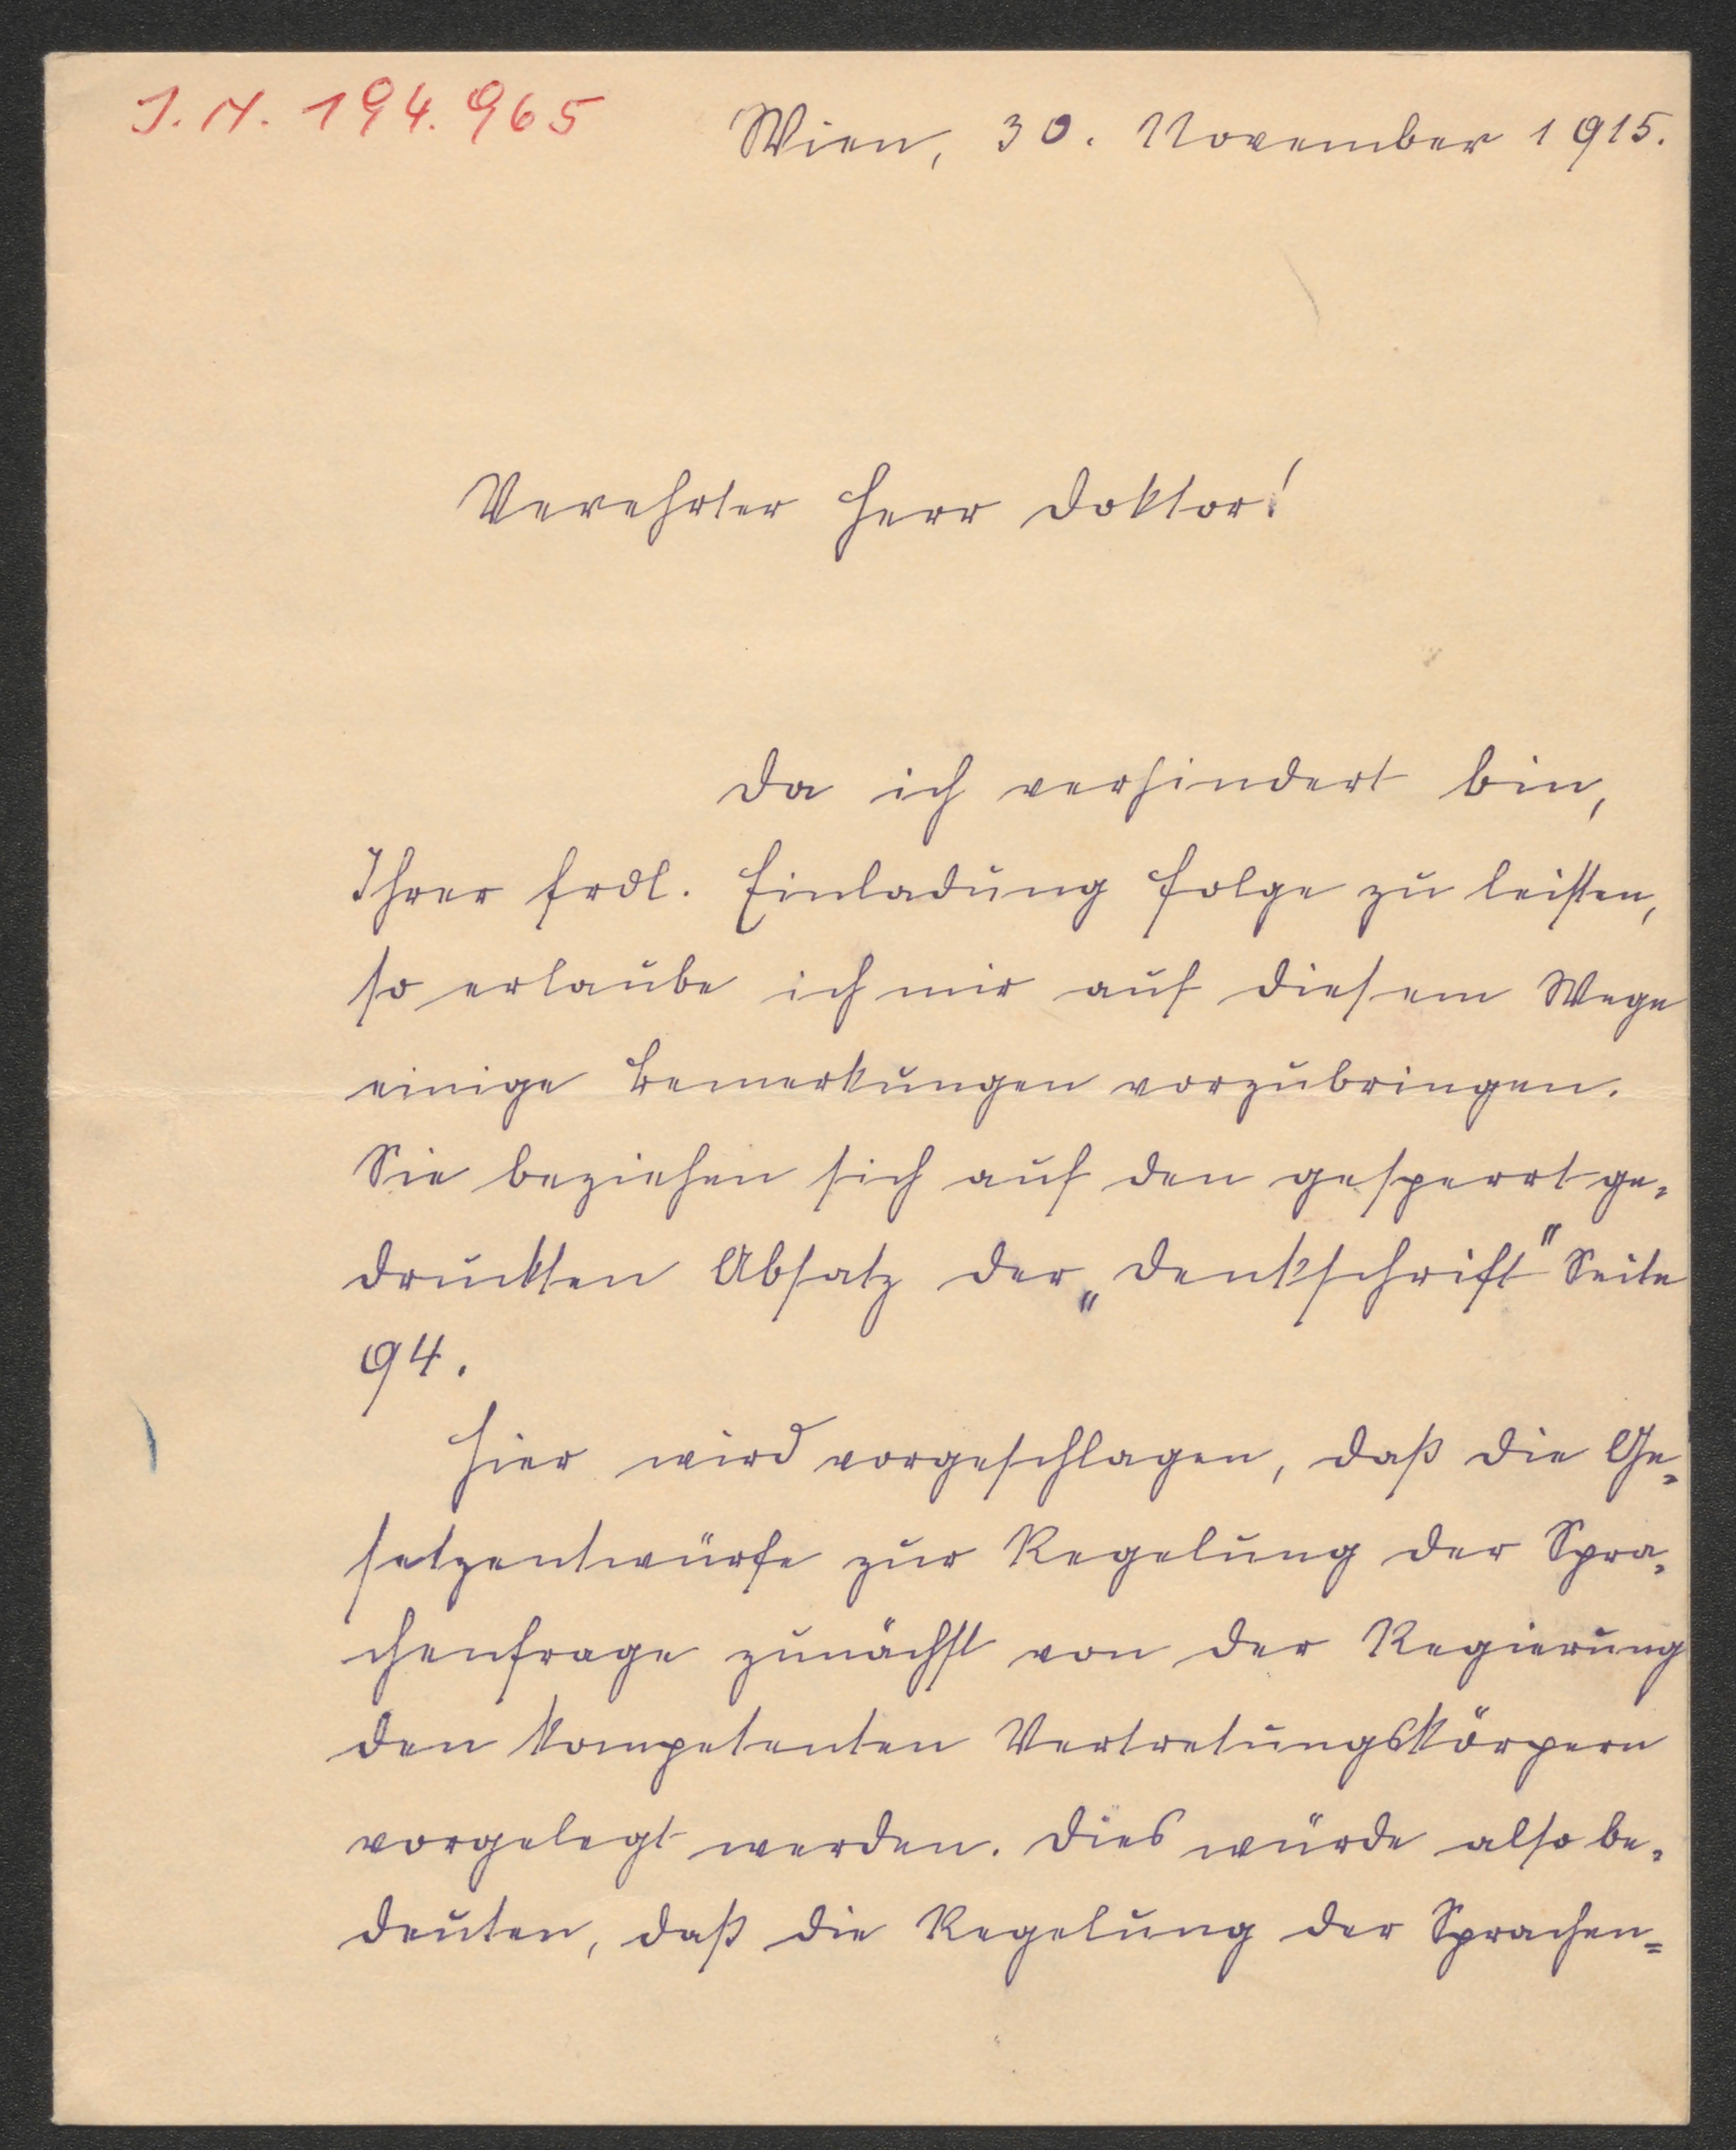 I.N. 194.965
Wien, 30. November 1915.
Verehrter Herr Doktor!
Da ich verhindert bin,
Ihrer frdl. Einladung Folge zu leisten,
so erlaube ich mir auf diesem Wege
einige Bemerkungen vorzubringen.
Sie beziehen sich auf den gesperrt ge-
druckten Absatz der „Denkschrift" Seite
94.
Hier wird vorgeschlagen, daß die Ge-
setzentwürfe zur Regelung der Spra-
chenfrage zunächst von der Regierung
den kompetenten Vertretungskörpern
vorgelegt werden. Dies würde also be-
deuten, daß die Regelung der Sprachen-